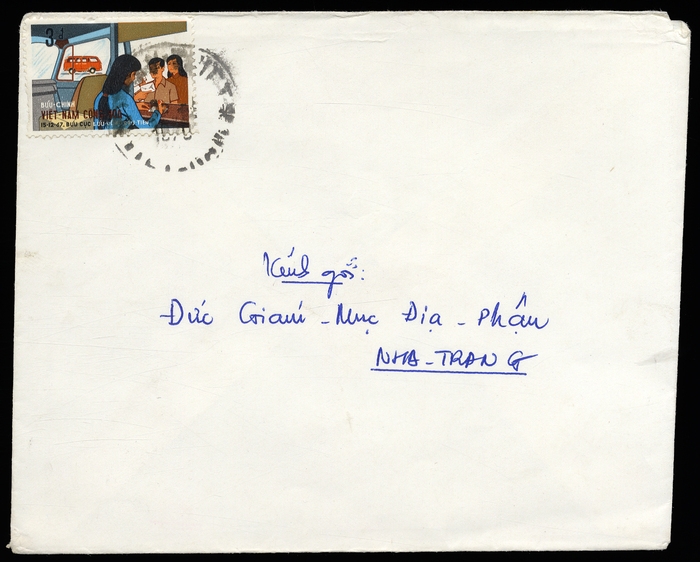 3đ
BƯU-CHÍNH
VIỆT-NAM CỘNG
15-12-67. BƯU CỤC LƯU
Kính gởi:
Đức Giám-Mục Địa-phận
NHA-TRANG